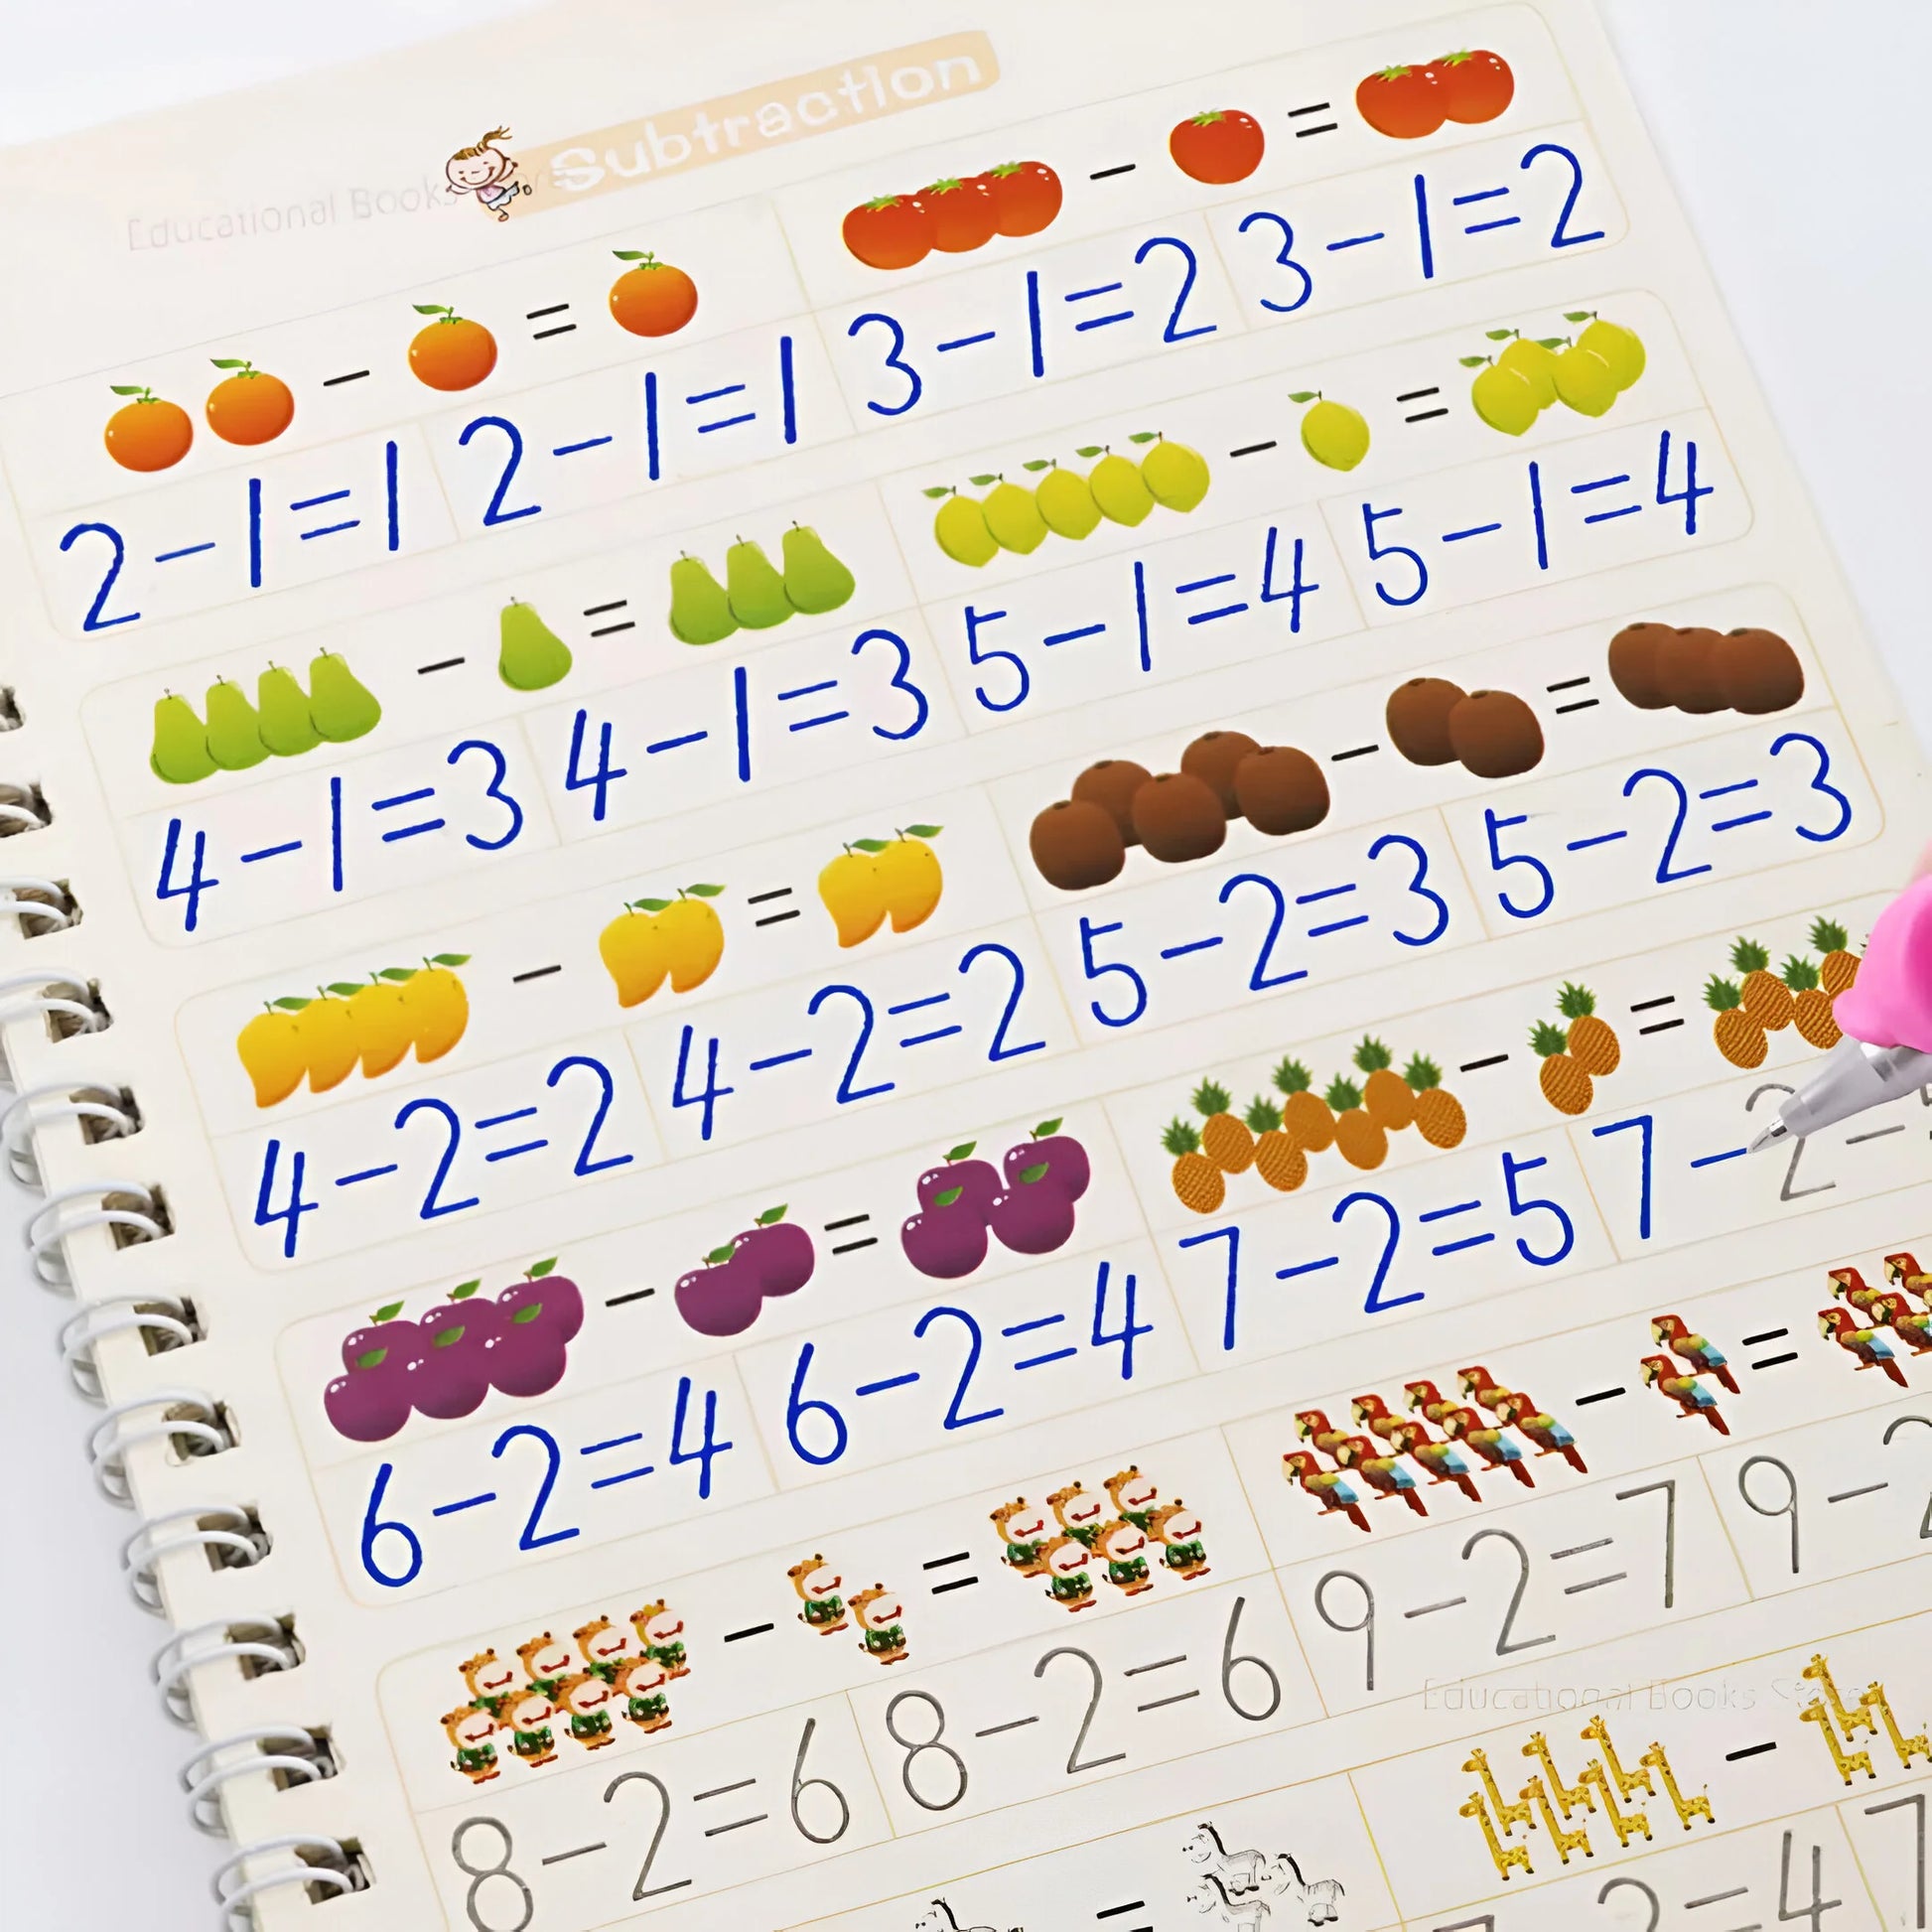 Subtraction
Educational Books
- = - =
2-1=1 2-1=1 3-1=2 3-1=2
- = - =
4-1=3 4-1=3 5-1=4 5-1=4
- = - =
4-2=2 4-2=2 5-2=3 5-2=3
- = - =
6-2=4 6-2=4 7-2=5 7-2-
- = - =
8-2=6 8-2=6 9-2=7 9-2
Educational Books Store
= -
=4 7